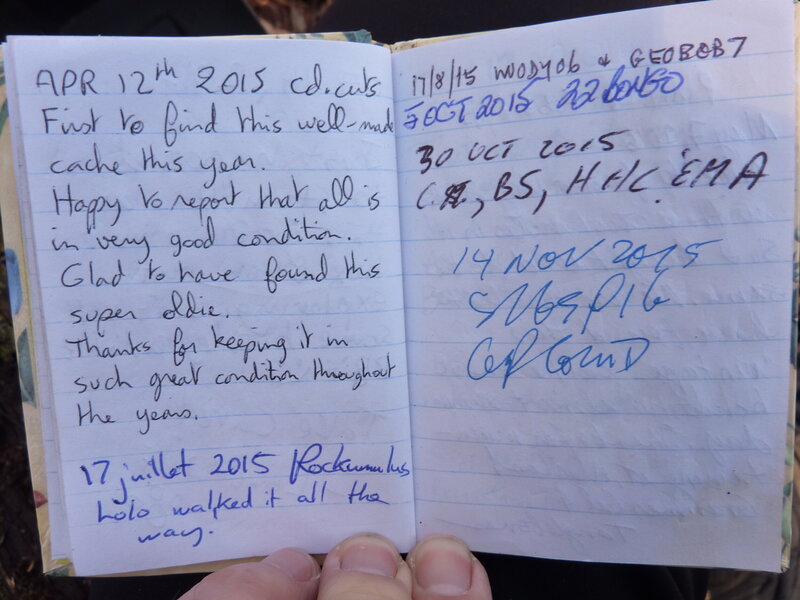 APR 12th 2015 cd.cuts
First to find this well-made
cache this year.
Happy to report that all is
in very good condition.
Glad to have found this
super oldie.
Thanks for keeping it in
such great condition throughout
the years.
17 juillet 2015 Rockumulus
Lolo walked it all the
way.
17/8/15 WOODY06 & GEOBOB7
OCT 2015 22BONGO
30 OCT 2015
BS, HHC, EMA
14 NOV 2015